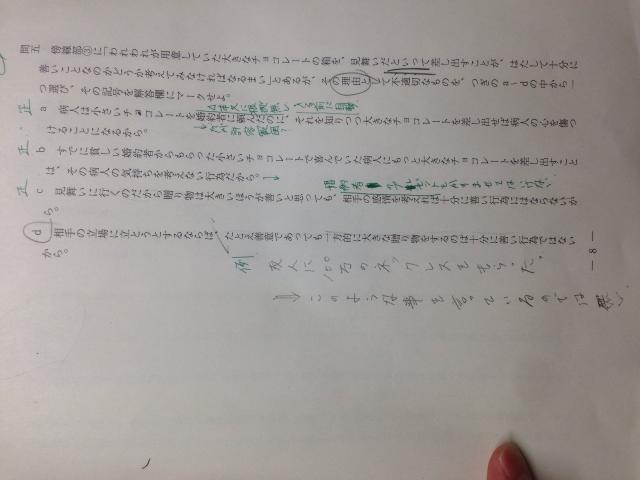 問五　傍線部③に「われわれが用意していた大きなチョコレートの箱を、見舞いだといって差し出すことが、はたして十分に
善いことなのかどうか考えてみなければなるまい」とあるが、その理由として不適切なものを、つぎのa～dの中から一
つ選び、その記号を解答欄にマークせよ。
正 a　病人は小さいチョコレートを婚約者に頼んだのに、それを知りつつ大きなチョコレートを差し出せば病人の心を傷つ
けることになるから。
正 b　すでに貧しい婚約者からもらった小さいチョコレートで喜んでいた病人にもっと大きなチョコレートを差し出すこと
は、その病人の気持ちを考えない行為だから。
正 c　見舞いに行くのだから贈り物は大きいほうが善いと思っても、相手の感情を考えれば十分に善い行為にはならないか
ら。
d　相手の立場に立とうとするならば、たとえ善意であっても一方的に大きな贈り物をするのは十分に善い行為ではない
から。
例 友人に100万のネックレスをもらった。
⇒ このような事を言っているのでは無い
— 8 —